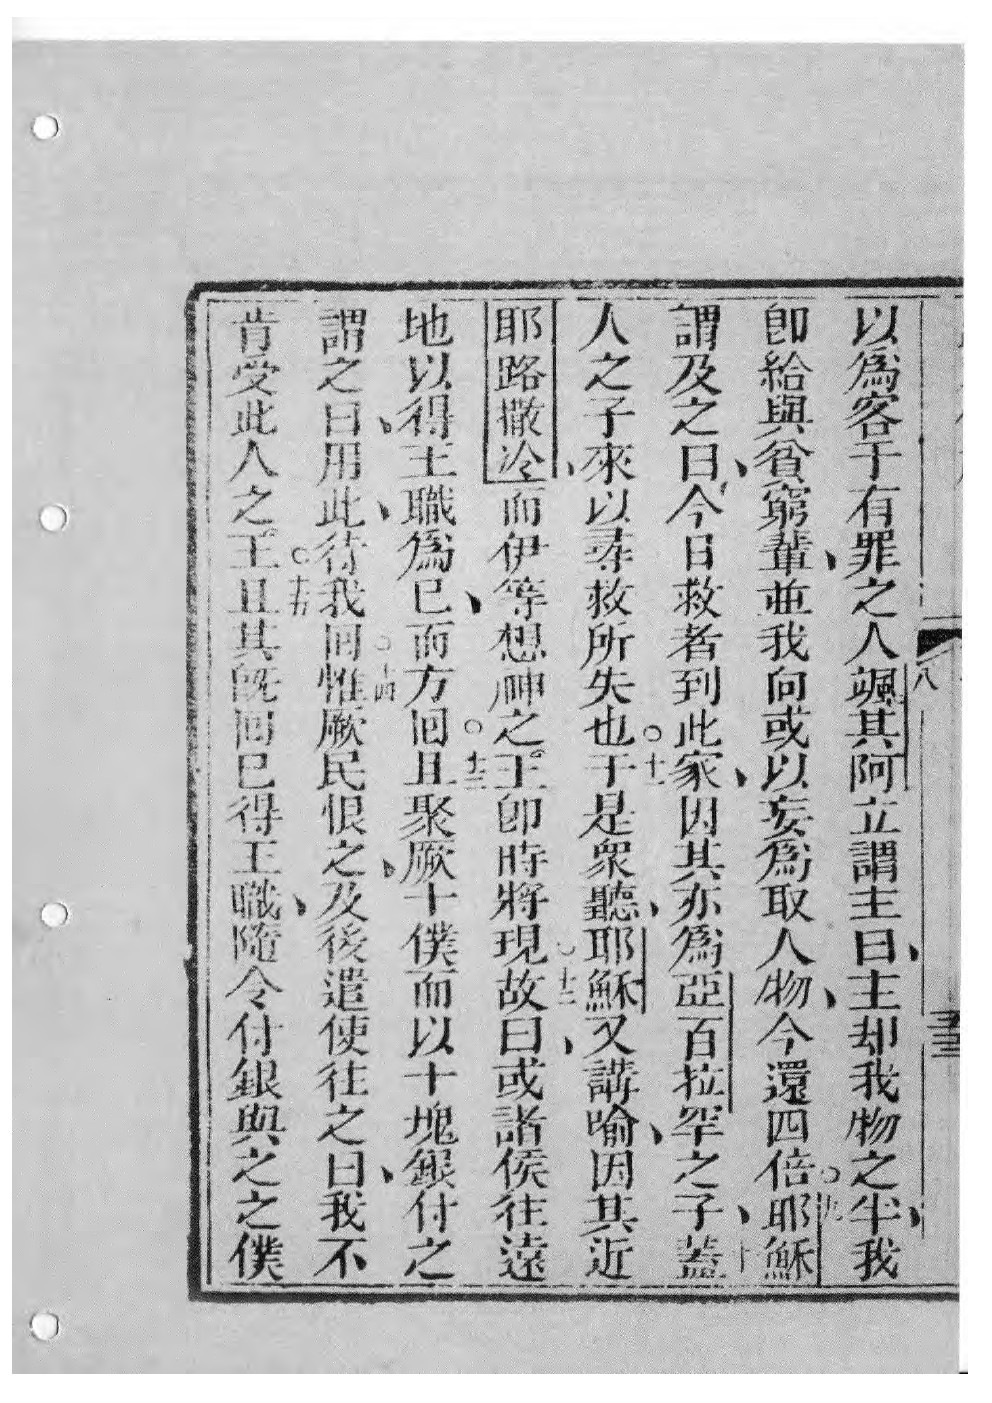 以為客于有罪之人颯其阿立謂主曰主却我物之半我
即給與貧窮輩並我向或以妄為取人物今還四倍○九耶穌
謂及之曰今日救者到此家因其亦為亞百拉罕之子○十蓋
人之子來以尋救所失也○十一于是眾聽耶穌又講喻因其近
耶路撒冷而伊等想神之王即時將現○十二故曰或諸侯往遠
地以得王職為己而方回○十三且聚厥十僕而以十塊銀付之
謂之曰用此待我回○十四惟厥民恨之及後遣使往之曰我不
肯受此人之王○十五且其既回已得王職隨令付銀與之之僕
八